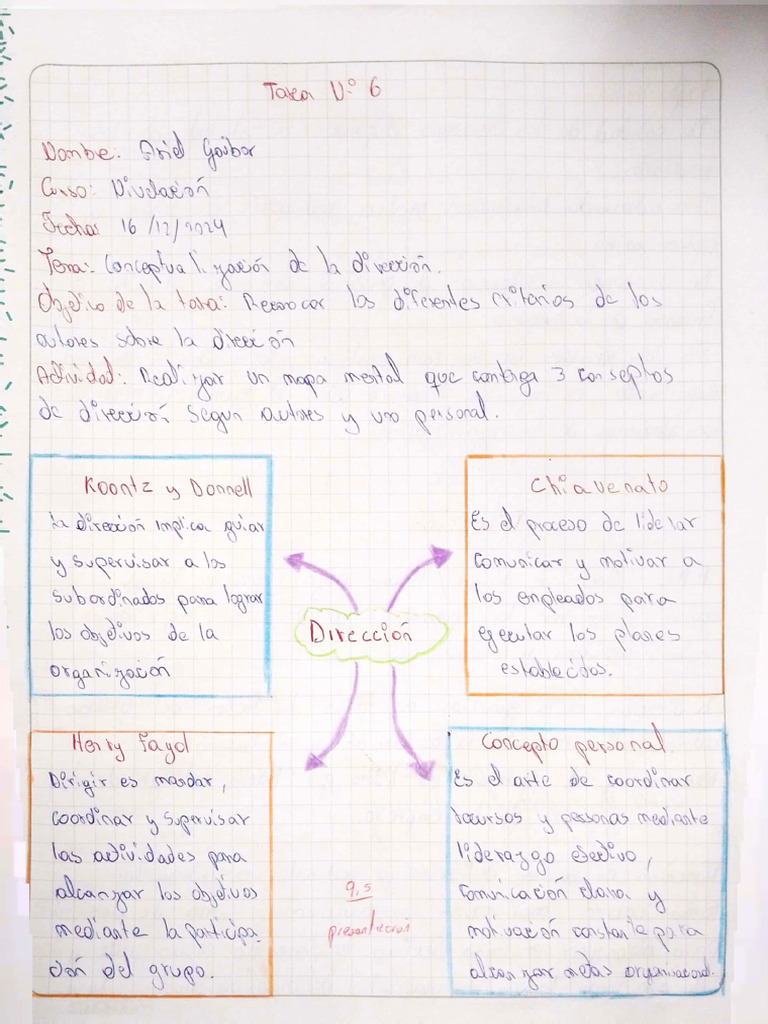 Tarea N° 6
Nombre: Ariel Gaibor
Curso: Nivelación
Fecha: 16/12/2024
Tema: Conceptualización de la dirección.
Objetivo de la tarea: Reconocer los diferentes criterios de los
autores sobre la dirección
Actividad: Realizar un mapa mental que contenga 3 conseptos
de dirección segun autores y uno personal.
Koontz y Donnell
La dirección implica guiar
y supervisar a los
subordinados para lograr
los objetivos de la
organización
Chiavenato
Es el proceso de liderar
comunicar y motivar a
los empleados para
ejecutar los planes
establecidos.
Dirección
Henry Fayol
Dirigir es mandar,
coordinar y supervisar
las actividades para
alcanzar los objetivos
mediante la participa-
ción del grupo.
Concepto personal
Es el arte de coordinar
recursos y personas mediante
liderazgo efectivo,
comunicación clara y
motivación constante para
alcanzar metas organizacional.
9,5
presentación